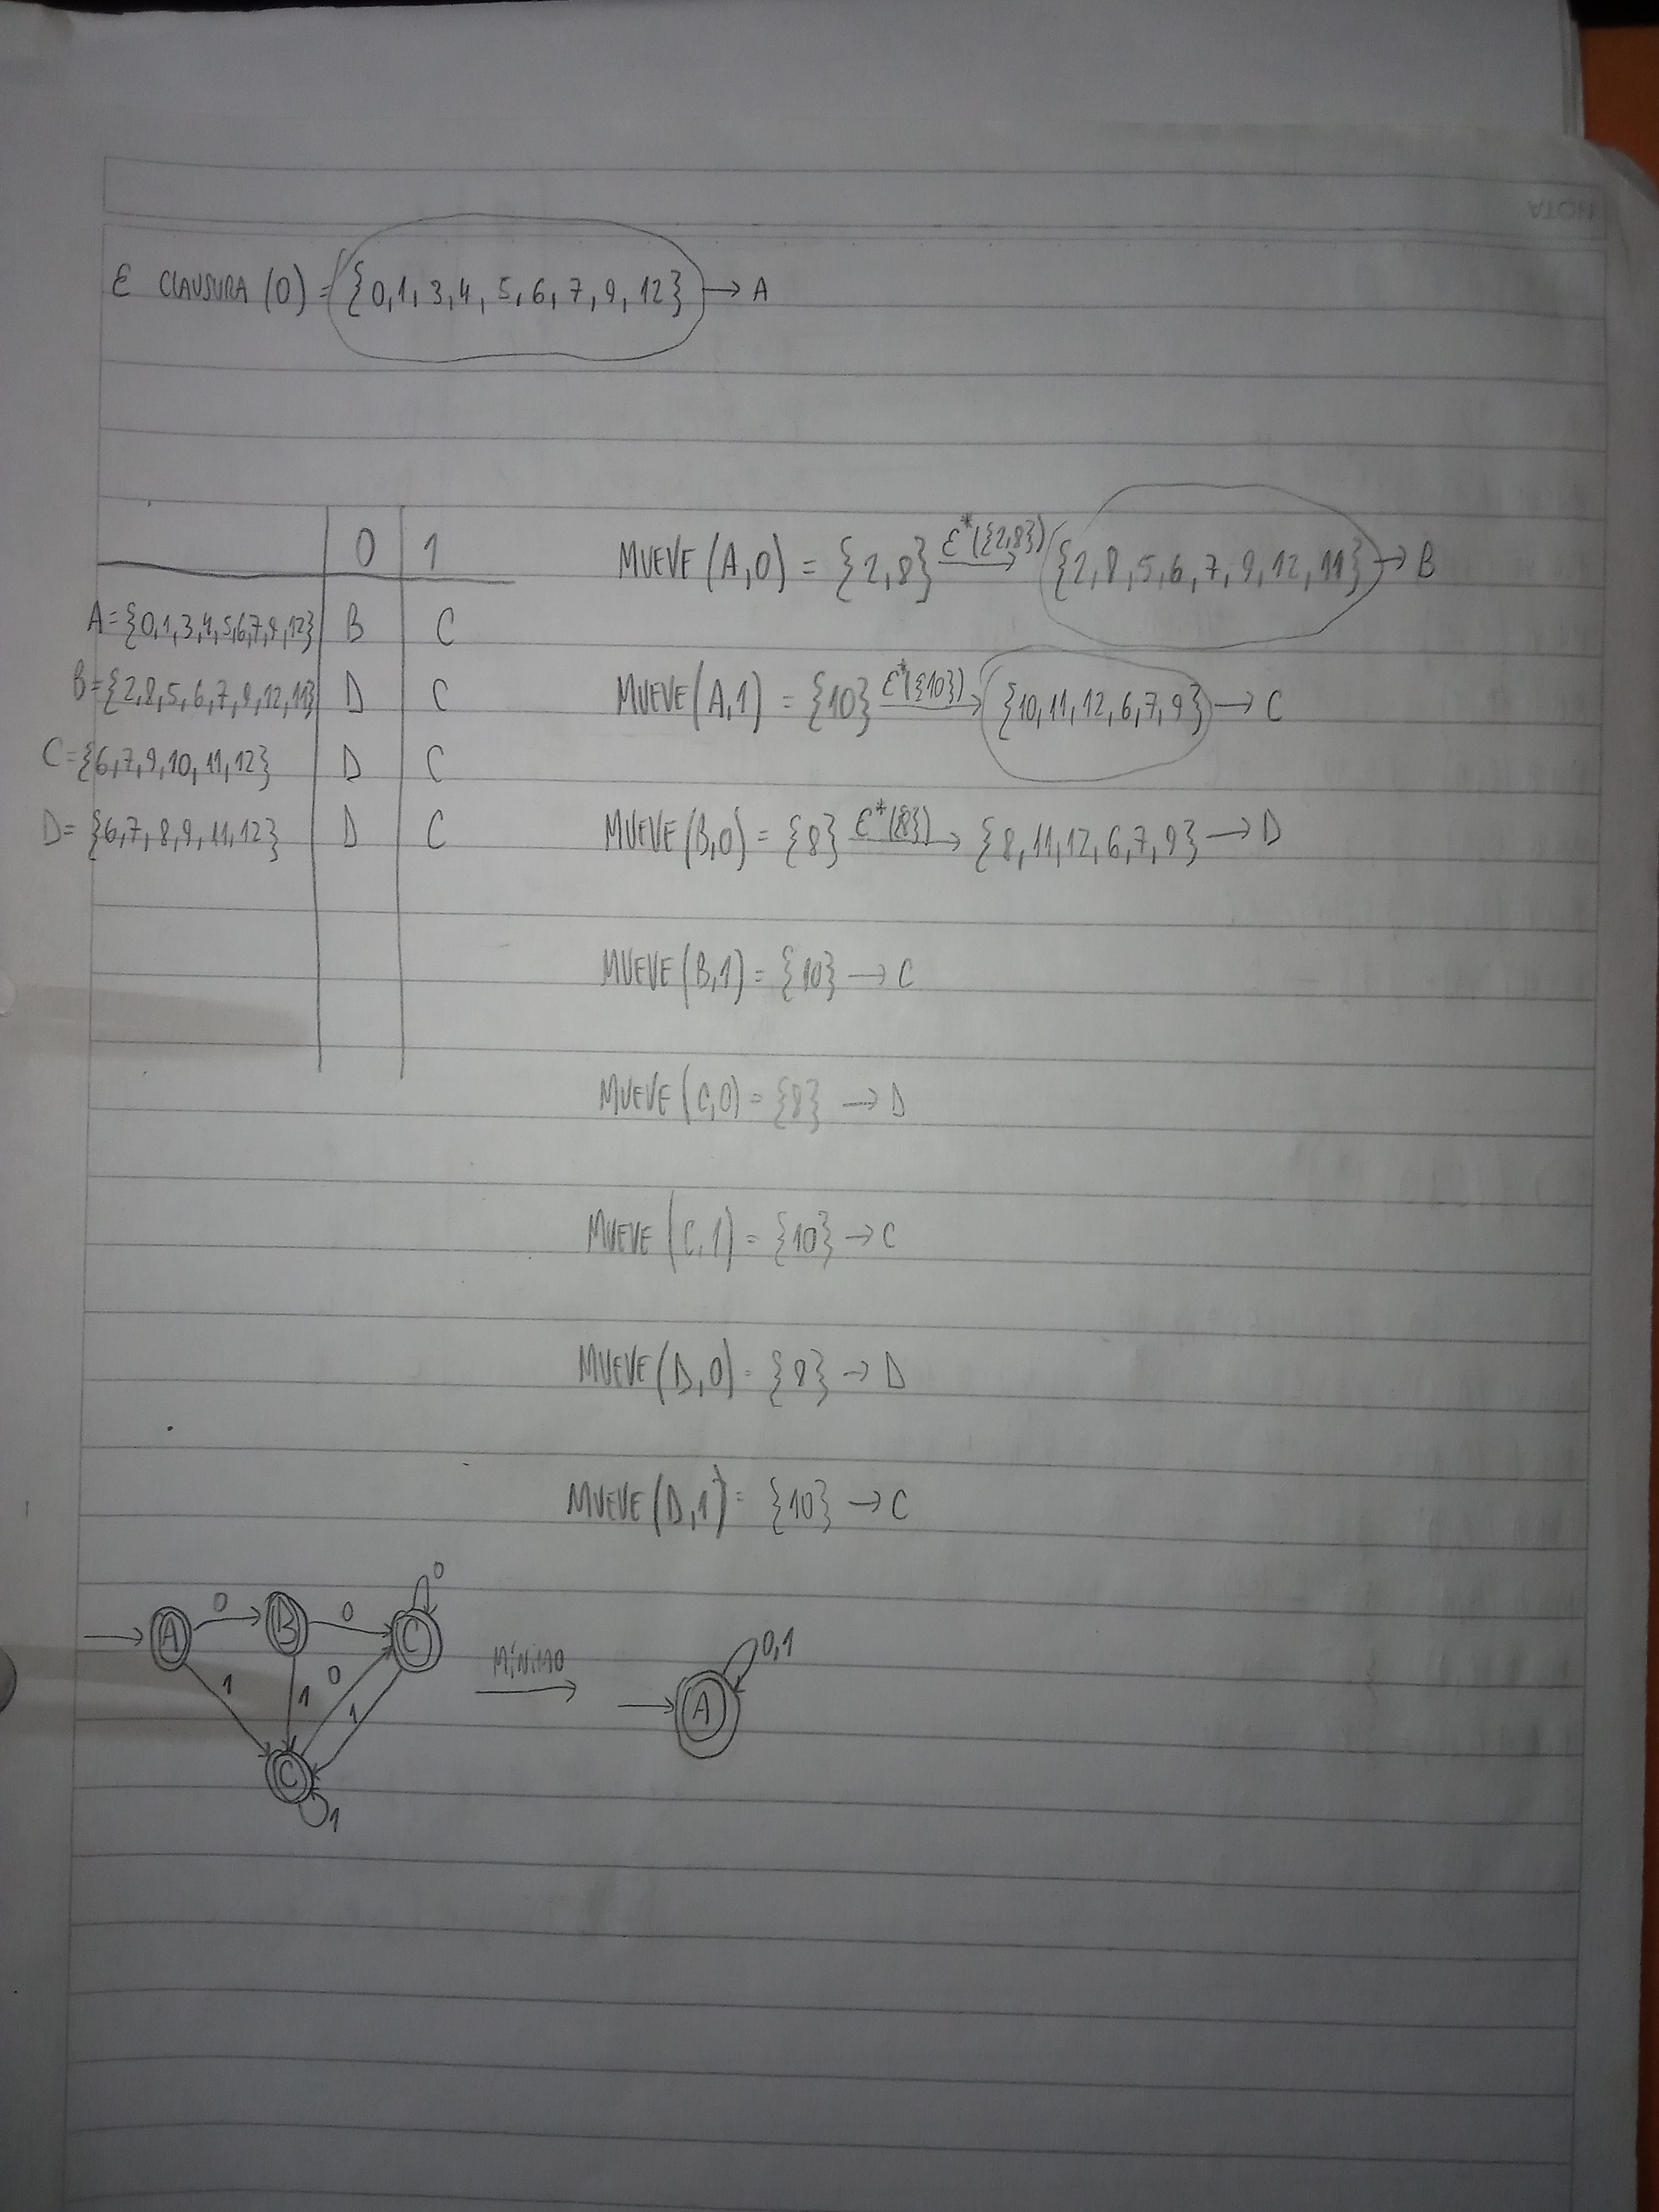 NOTA
ε CLAUSURA (0) = {0,1,3,4,5,6,7,9,12} → A
0 1
A={0,1,3,4,5,6,7,9,12} B C
B={2,8,5,6,7,9,12,11} D C
C={6,7,9,10,11,12} D C
D={6,7,8,9,11,12} D C
MUEVE (A,0) = {2,8} ε*({2,8}) → {2,8,5,6,7,9,12,11} → B
MUEVE (A,1) = {10} ε*({10}) → {10,11,12,6,7,9} → C
MUEVE (B,0) = {8} ε*({8}) → {8,11,12,6,7,9} → D
MUEVE (B,1) = {10} → C
MUEVE (C,0) = {8} → D
MUEVE (C,1) = {10} → C
MUEVE (D,0) = {8} → D
MUEVE (D,1) = {10} → C
→ A 0 → B 0 → C 0
1 1 0 1
C 1
MÍNIMO →
→ A 0,1